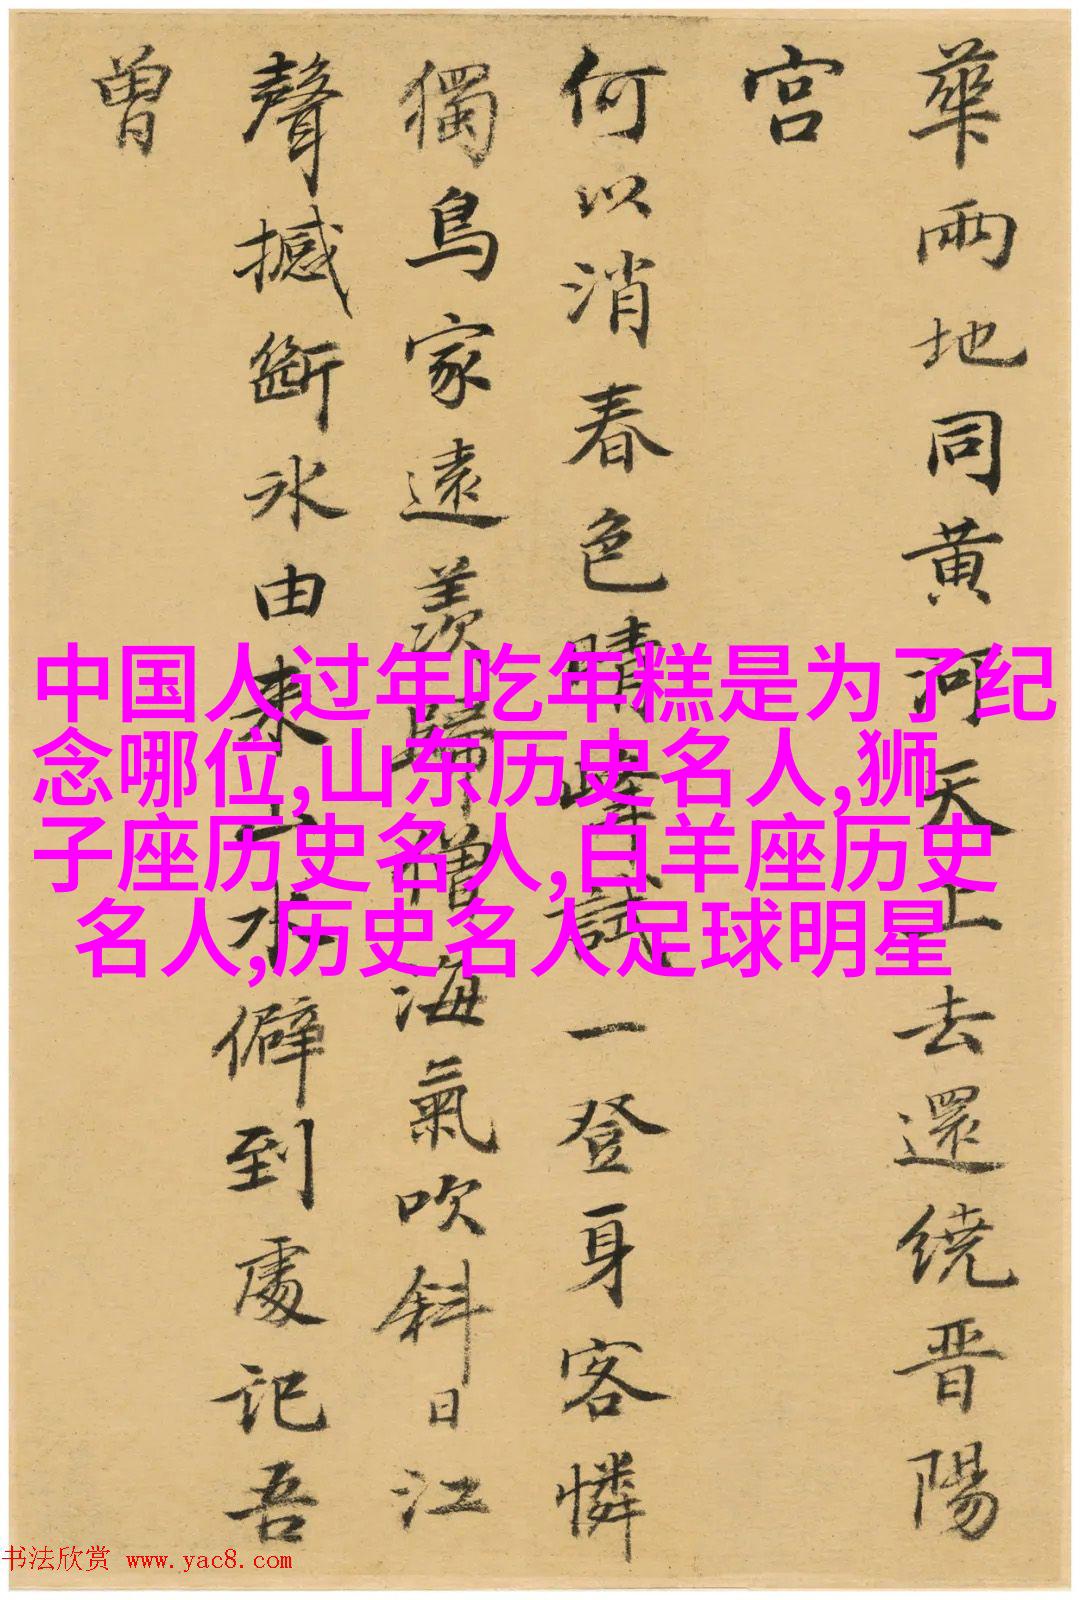 華兩地同黄河天上去還繞晋陽
宫
何以消春色晴峰試一登身客憐
獨鳥家遠羨歸僧海氣吹斜日江
聲撼斷冰由來山水僻到處記吾
曾
中国人过年吃年糕是为了纪
念哪位,山东历史名人,狮
子座历史名人,白羊座历史
名人,历史名人足球明星
书法欣赏 www.yac8.com